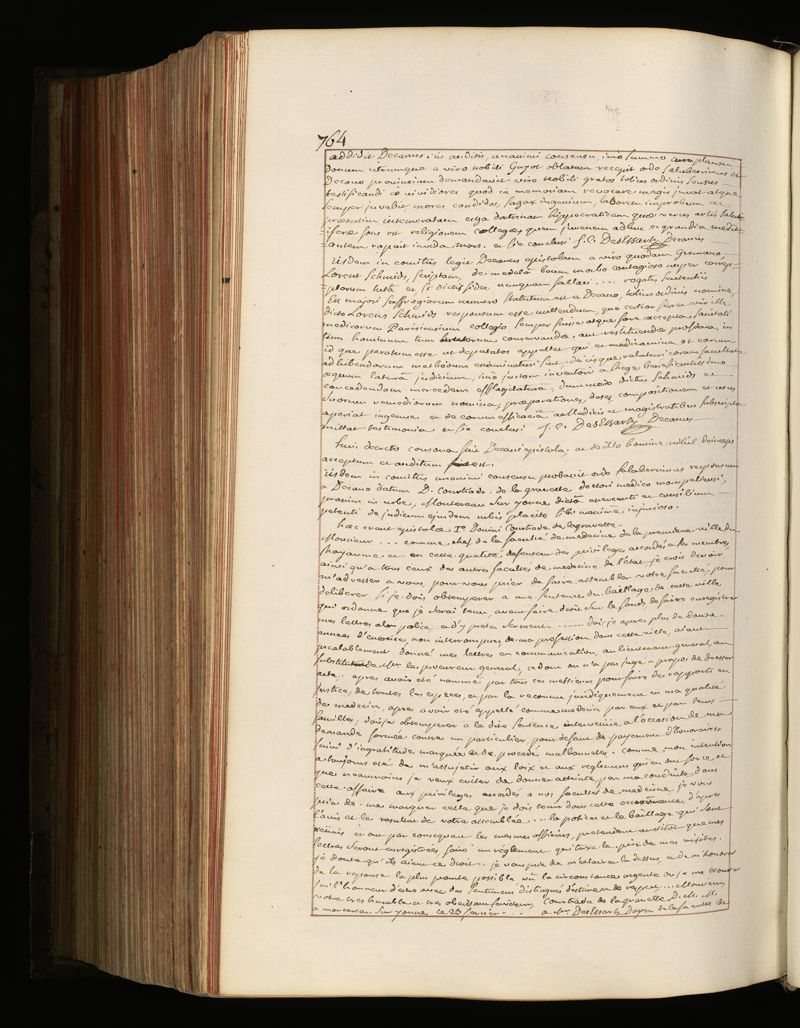 764
addidit Decanus: iis auditis, unanimi consensu, imò summo cum plausu
donum utrumque a viro nobili Guyot oblatum recepit ordo saluberrimus et
Decano provinciam demandavit viro nobili gratos totius ordinis sensus
testificandi eò vividiores quod in memoriam revocare magis juvat atque
semper juvabit mores candidos, sagax ingenium, laborem improbum ac
præsertim intemeratam erga doctrinam hippocraticam quæ veræ artis salut-
-iferæ fons est religionem collegæ quem juvenem adhuc et grandia medit-
-antem rapuit invida mors. et sic conclusi J. C. DesEssartz Decanus
iisdem in comitiis legit Decanus epistolam a viro quodam Germano
Lorent Schmids, scriptam, de medelâ boum morbo contagioso nuper corrept-
-ptorum tutâ et si dictis fides nunquam fallaci .... rogatis sententiis
Ex majori suffragiorum numero statutum est a Decano, totius ordinis nomine,
dicto Lorens Schmids responsum esse mittendum, quo certior fieret vir ille
medicorum Parisiensium collegio semper fuisse atque fore accepta sanitati
tum hominum tum conservandæ, aut restituendæ profutura, in
id que paratum esse ac deputatos appellat qui et medicamina et eorum
adhibendorum methodum examinaturi sint de iisque relaturi coram facultate
æquum laturâ judicium, imò justam inventori a Rege beneficentissimo
concedendam mercedem efflagitatura, dummodo dictus Schmids et
suorum remediorum nomina, præparationes, doses, compositionem et usus
aperiat ingenue et de eorum efficaciâ a Medicis et magistratibus subscripta
mittat testimonia et sic conclusi J. C. DesEssartz Decanus
huic decreto consona fuit Decani epistola; ac de illo homine nihil deinceps
acceptum et auditum est.
iisdem in comitiis unanimi consensu probavit ordo saluberrimus responsum
a Decano datum D. Courtiade de la gravette doctori medico monspeliensi,
praxim in urbe, Montereau sur yonne dictâ exercenti et consilium
petenti de judicum ejusdem urbis placito sibi nomine injurioso.
hæc erant epistolæ I.ª Domini Courtiade de lagravette.
Monsieur .... comme chef de la faculté de medecine de la premiere ville du
Royaume et en cette qualité defenseur des privileges accordés a ses membres,
ainsi qu'a tous ceux des autres facultés de medecine de l'état, je crois devoir
m'adresser a vous, pour vous prier de faire assembler votre faculté; pour
deliberer si je dois obtemperer a une sentence du bailliage de cette ville
qui ordonne que je serai tenu avant faire droit sur le fonds de faire enregistrer
mes lettres a la police et d'y preter serment ...... dois je apres plus de douze
années d'exercice non interrompues de ma profession dans cette ville, aiant
prealablement donné mes lettres en communication, au lieutenant general, au
substitut de Mr. le procureur general, ce dont on n'a pas jugé a propos de dresser
acte; apres avoir été nommé par tous ces messieurs pour faire des rapports en
justice, de toutes les especes, et par là reconnu juridiquement en ma qualité
de medecin, apres avoir été appellé comme medecin par eux et par leurs
familles; dois je obtemperer a la dite sentence intervenue a l'occasion de ma
demande formée contre un particulier, pour defaut de payement d'honoraires
suivi d'ingratitude marquée et de procedés malhonnettes. comme mon intention
a toujours été de m'assujetir aux loix et aux reglemens qui en ont force et
que neanmoins je veux eviter de donner atteinte par ma conduite dans
cette affaire aux privileges accordés a nos facultés de medecine, je vous
prie de me marquer celle que je dois tenir dans cette occurence d'apres
l'avis et le resultat de votre assemblée... la police et le bailliage qui sont
réunis et ont par consequent les mesmes officiers, pretendent aussitôt que mes
lettres seront enregistrées faire un reglement qui taxe le prix de mes visites.
je doute qu'ils aient ce droit. je vous prie de m'éclairer là dessus, et de m'honorer
de la reponse la plus prompte possible vû la circonstance urgente où je me trouve
j'ai l'honneur d'etre avec des sentimens distingués d'estime et de respect... Monsieur
votre tres humble et tres obeissant serviteur Courtiade de la gravette D. M. M.
a montereau sur yonne ce 28 fevrier. a Mr. DesEssartz Doyen de la faculté de